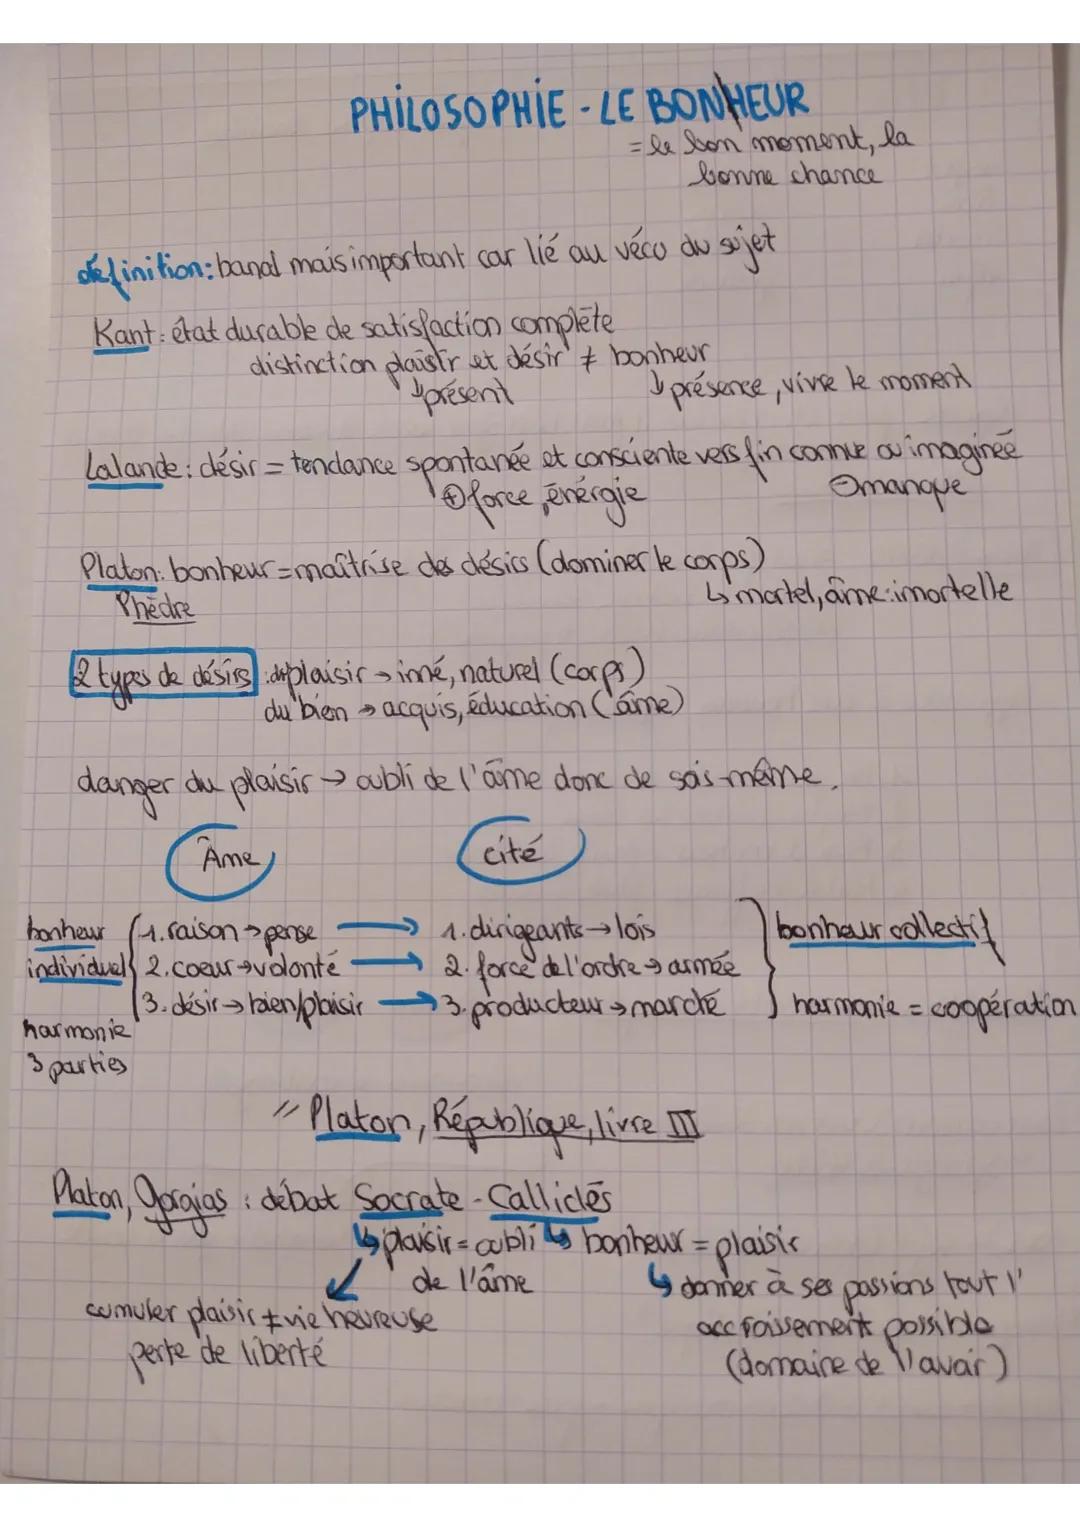 PHILOSOPHIE - LE BONHEUR
= le bon moment, la
bonne chance
définition: banal mais important car lié au vécu du sujet
Kant: état durable de satisfaction complète
distinction plaisir et désir ≠ bonheur
↓ présent ↓ présence, vivre le moment
Lalande: désir = tendance spontanée et consciente vers fin connue ou imaginée
⊕ force, énérgie ⊖ manque
Platon: bonheur = maîtrise des désirs (dominer le corps)
Phèdre ↳ mortel, âme: imortelle
2 types de désirs : du plaisir → inné, naturel (corps)
du bien → acquis, éducation (âme)
danger du plaisir → oubli de l'âme donc de sois-même.
Âme cité
bonheur 1. raison → pense → 1. dirigeants → lois bonheur collectif
individuel 2. coeur → volonté → 2. force de l'ordre → armée
3. désir → bien/plaisir → 3. producteur → marché harmonie = coopération
harmonie
3 parties
// Platon, République, livre III
Platon, Gorgias : débat Socrate - Calliclès
↳ plaisir = oubli ↳ bonheur = plaisir
de l'âme ↳ donner à ses passions tout l'
cumuler plaisir ≠ vie heureuse accroissement possible
perte de liberté (domaine de l'avoir)